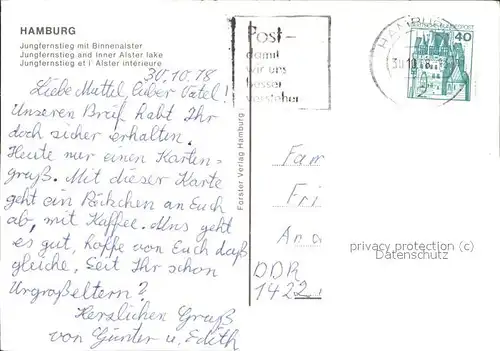 HAMBURG
Jungfernstieg mit Binnenalster
Jungfernstieg and Inner Alster lake
Jungfernstieg et l' Alster intérieure
30.10.78
Liebe Muttel, lieber Vatel!
Unseren Brief habt Ihr
doch sicher erhalten.
Heute nur einen Karten-
gruß. Mit dieser Karte
geht ein Päckchen an Euch
ab, mit Kaffee. Uns geht
es gut, hoffe von Euch daß
gleiche. Seit Ihr schon
Urgroßeltern?
Herzlichen Gruß
von Günter u. Edith
Forster Verlag Hamburg
Post-
damit
wir uns
besser
verstehen
HAMBURG
30.10.78
DEUTSCHE BUNDESPOST
40
Fam
Fri
Ara
DDR
1422
privacy protection (c)
Datenschutz